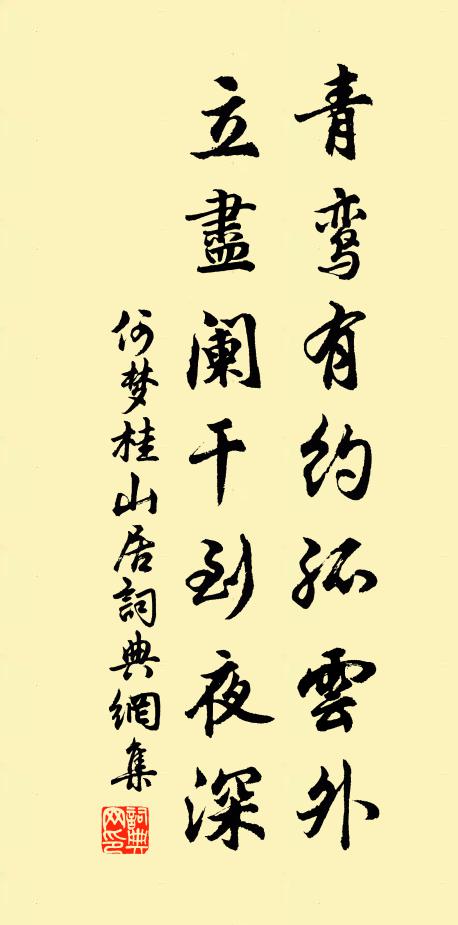 青鸾有约孤雲外
立盡阑干到夜深
何梦桂山居詞典網集
詞典网印